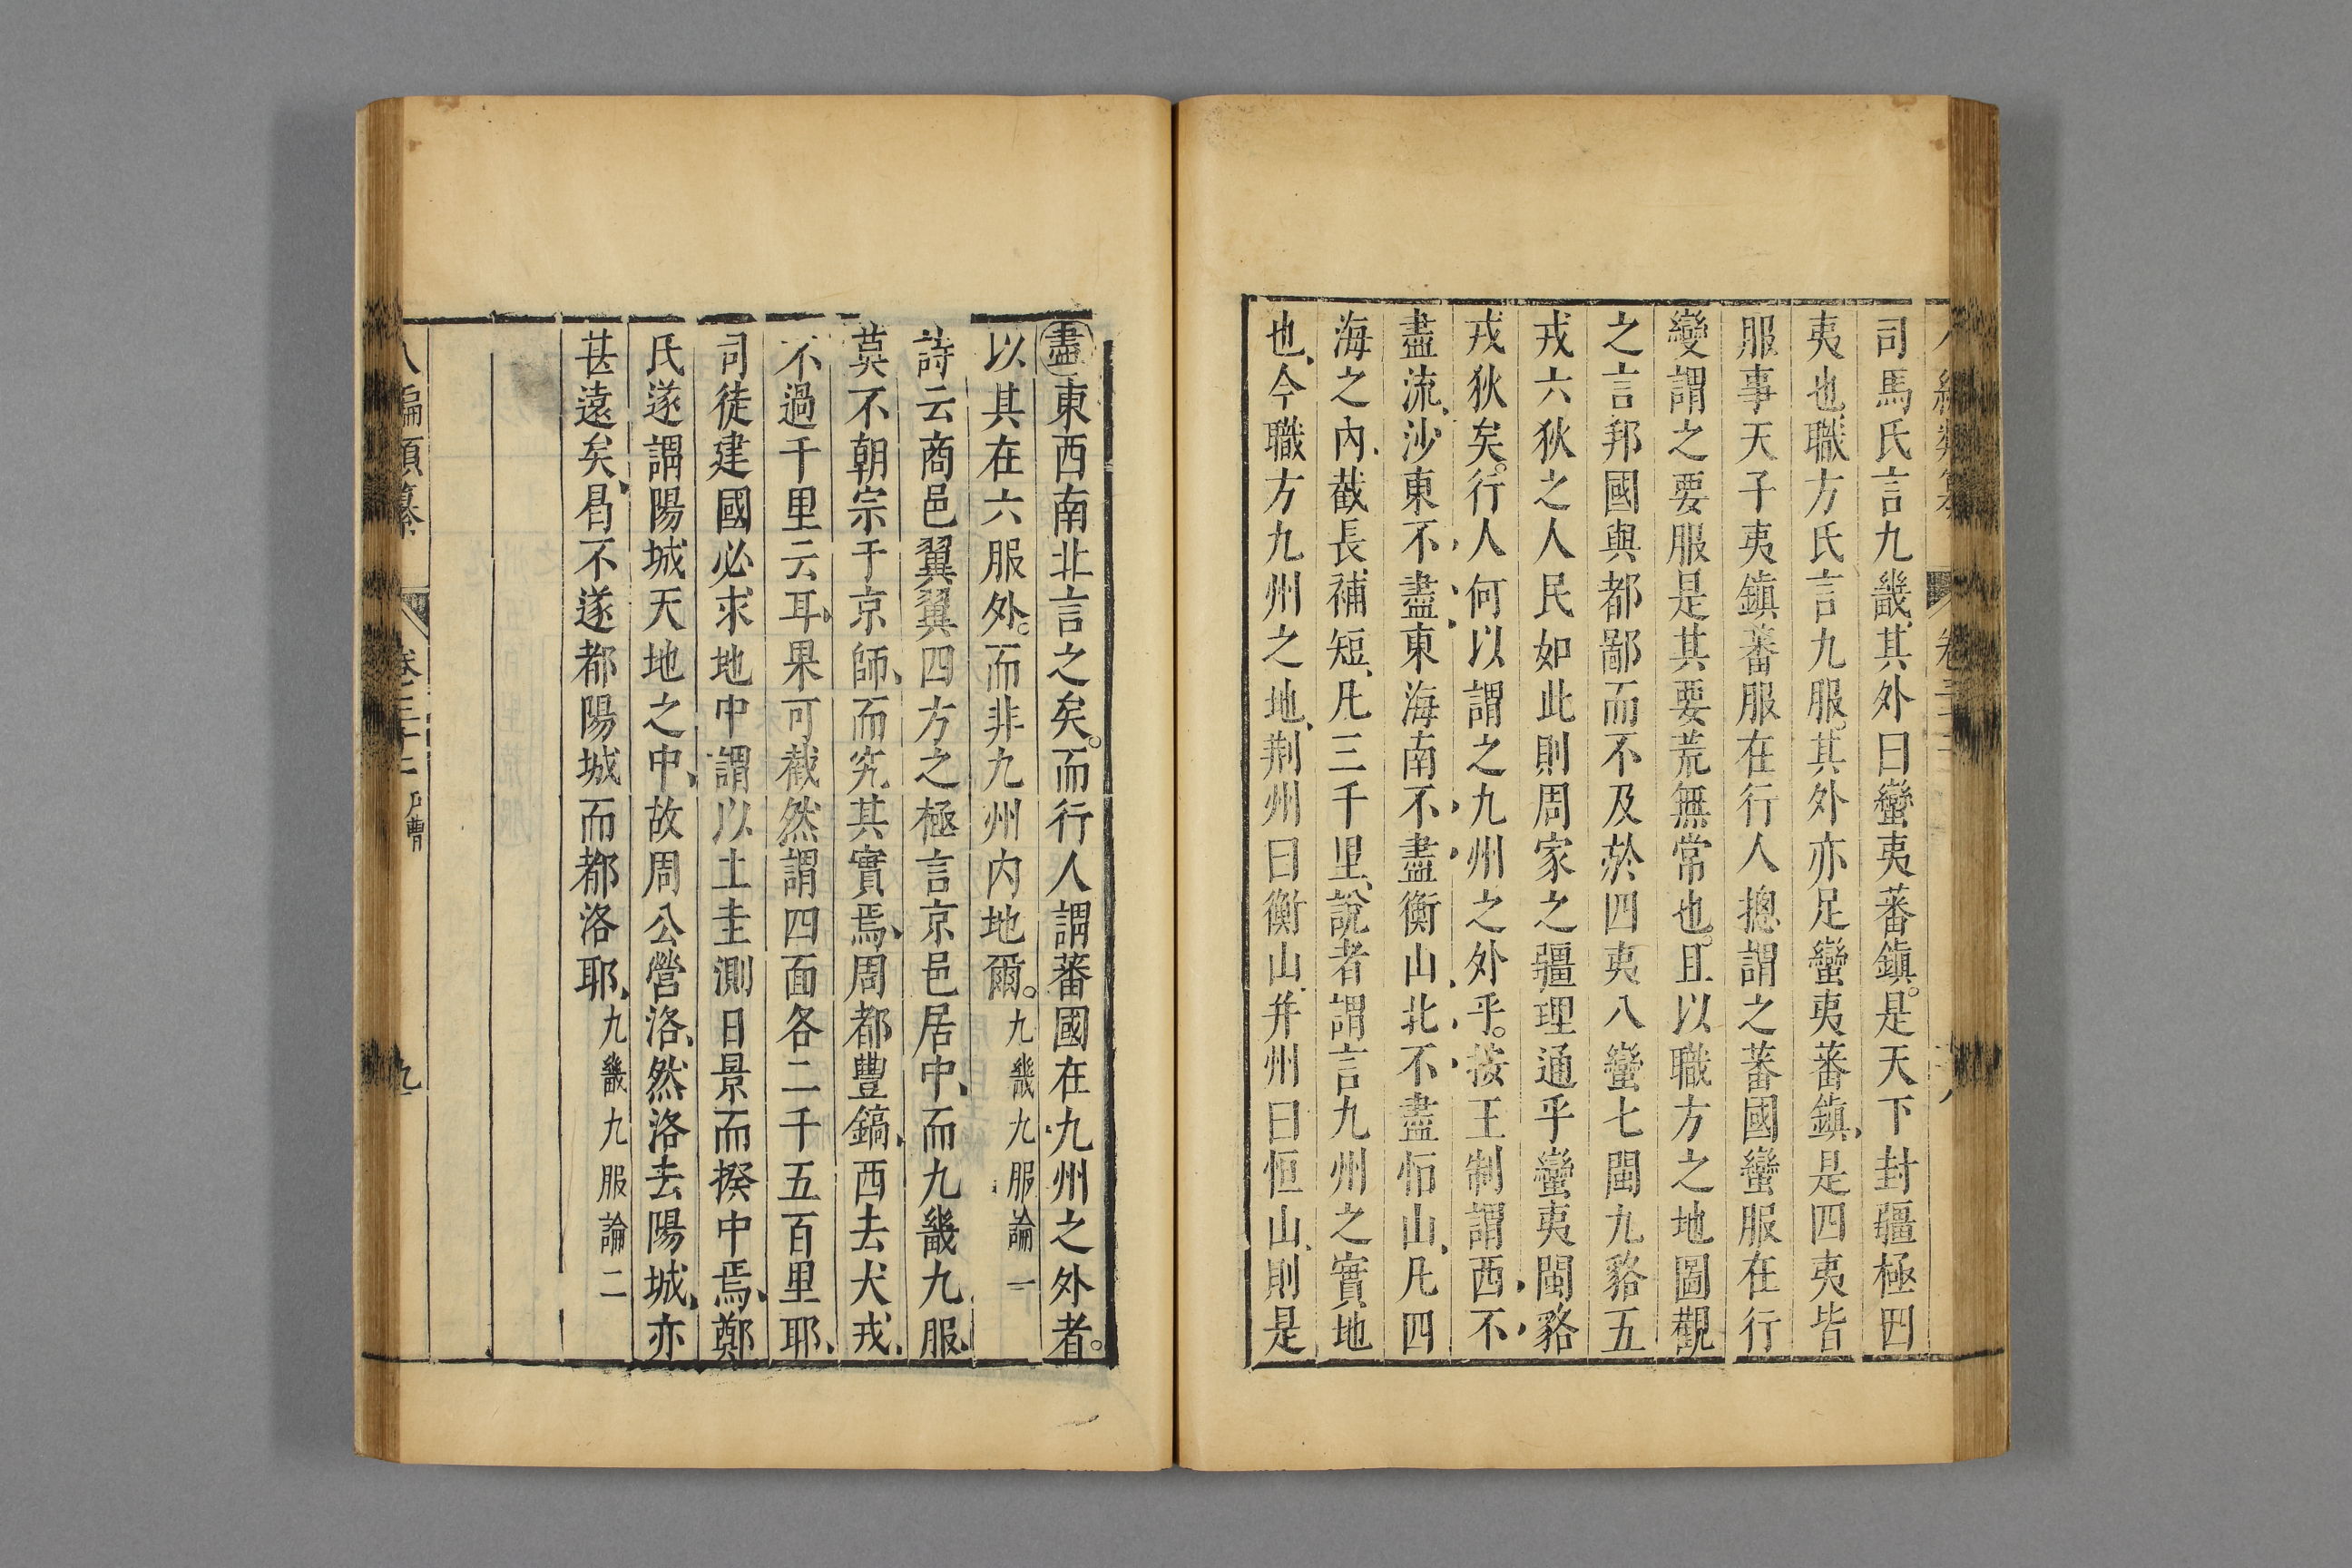 司馬氏言九畿其外曰蠻夷蕃鎭。是天下封疆極四
夷也職方氏言九服。其外亦足蠻夷蕃鎭、是四夷皆
服事天子夷鎭蕃服在行人摠謂之蕃國蠻服在行
變謂之要服是其要荒無常也。且以職方之地圖觀
之言邦國與都鄙而不及於四夷八蠻七閩九貉五
戎六狄之人民如此則周家之疆理通乎蠻夷閩貉
戎狄矣。行人何以謂之九州之外乎。按王制謂西不
盡流沙東不盡東海南不盡衡山北不盡恒山、凡四
海之內、截長補短、凡三千里、說者謂言九州之實地
也、今職方九州之地、荆州曰衡山、幷州曰恒山、則是
盡東西南北言之矣。而行人謂蕃國在九州之外者。
以其在六服外。而非九州内地爾。九畿九服論一
詩云商邑翼翼四方之極言京邑居中、而九畿九服、
莫不朝宗于京師、而究其實焉、周都豐鎬、西去犬戎、
不過千里云耳、果可截然謂四面各二千五百里耶、
司徒建國必求地中謂以土圭測日景而揆中焉、鄭
氏遂謂陽城天地之中、故周公營洛、然洛去陽城、亦
甚遠矣、曷不遂都陽城而都洛耶、九畿九服論二
八編類纂 卷三十二 戶曹 九